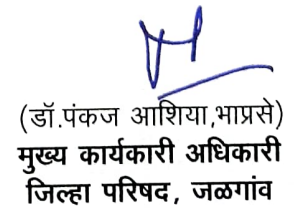 (डॉ.पंकज आशिया,भाप्रसे)
मुख्य कार्यकारी अधिकारी
जिल्हा परिषद, जळगांव